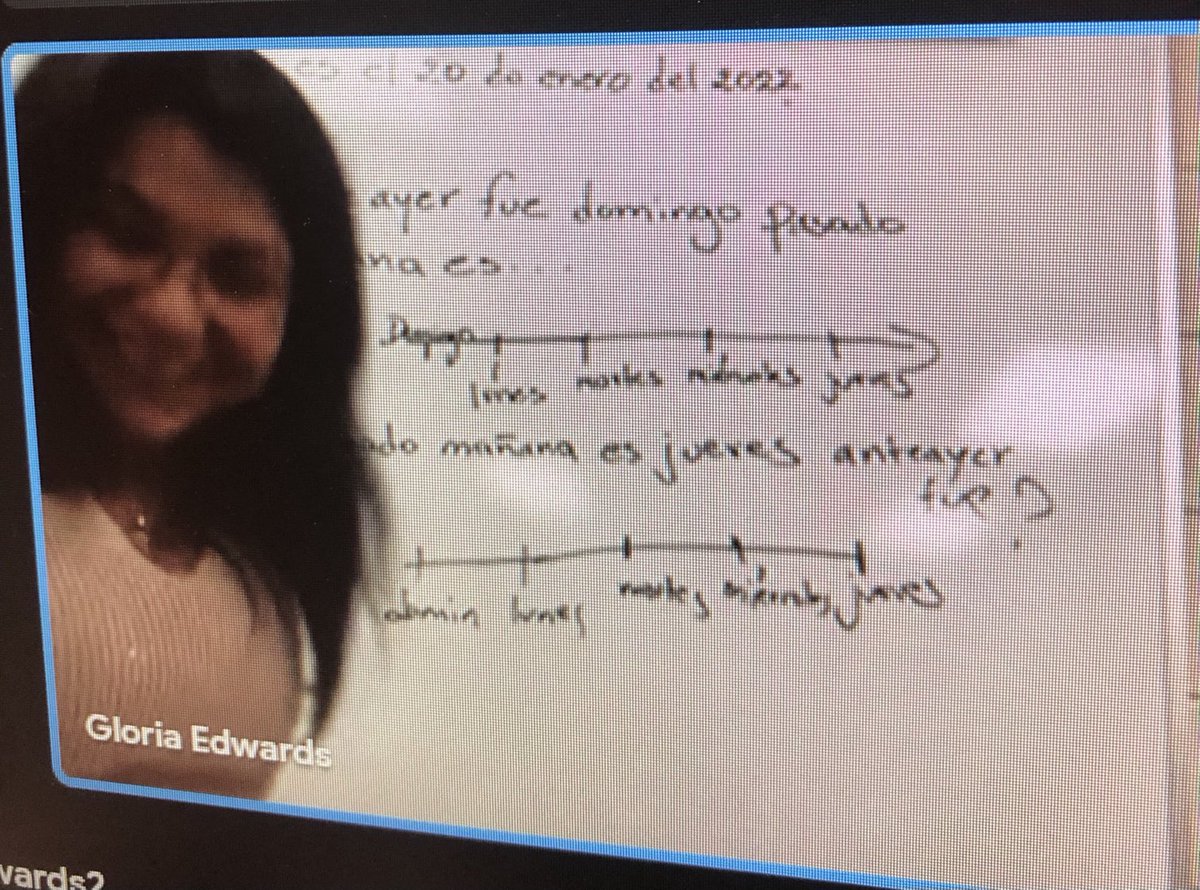 es el 20 de enero del 2022
ayer fue domingo pasado
na es...
lunes martes miércoles jueves
ado mañana es jueves anteayer
fue ?
domin lunes martes miércoles jueves
Gloria Edwards
wards2